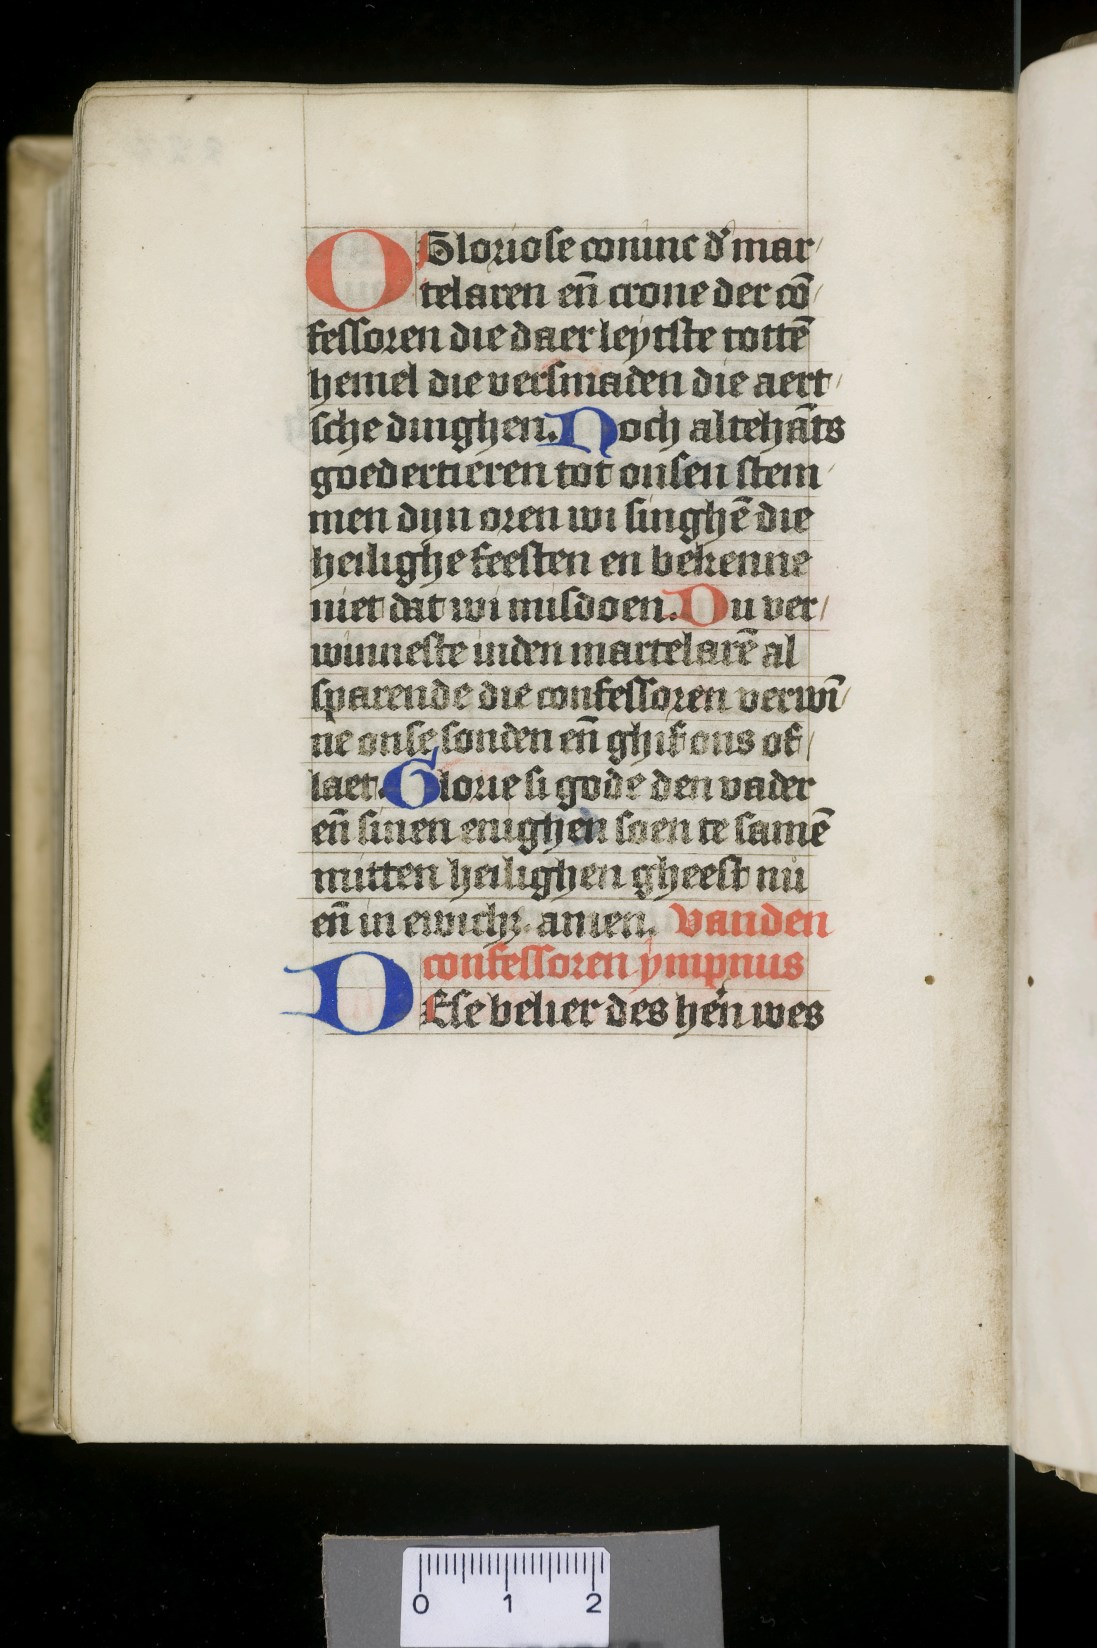 O Gloriose coninc d' mar/
telaren en̄ crone der cō/
fessoren die daer leytste tottē
hemel die versmaden die aert/
sche dinghen. Noch altehāts
goedertieren tot onsen stem/
men dijn oren wi singhē die
heilighe feesten en bekenne
niet dat wi misdoen. Du ver/
winneste inden martelarē al
sparende die confessoren verwī/
ne onse sonden en̄ ghif ons of/
laet. Glorie si gode den vader
en̄ sinen enighen soen te samē
mitten heilighen gheest nu
en̄ in ewichz. amen. Vanden
confessoren ympnus
DEse belier des hen̄ wes
0 1 2